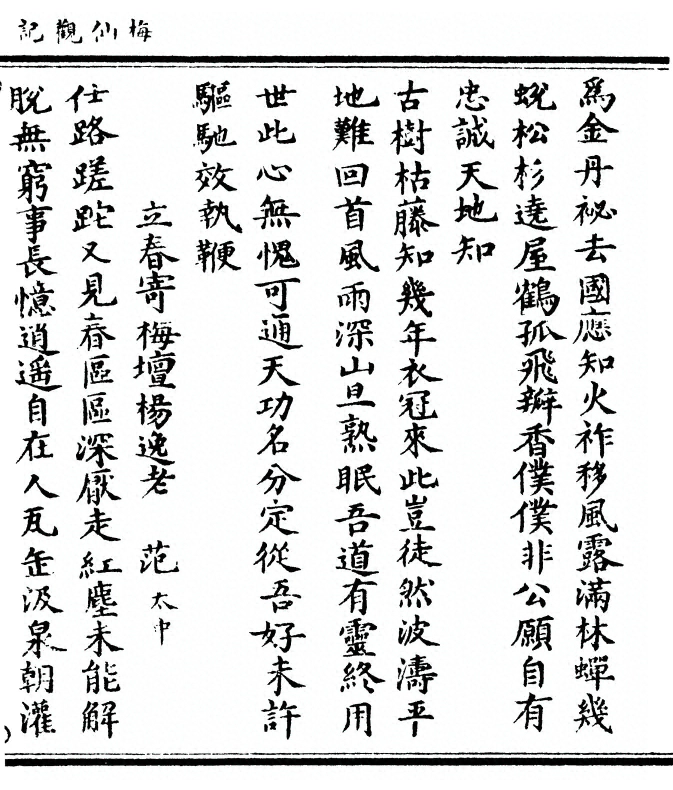 梅仙觀記
為金丹祕去國應知火祚移風露滿林蟬幾
蛻松杉遶屋鶴孤飛瓣香僕僕非公願自有
忠誠天地知
古樹枯藤知幾年衣冠來此豈徒然波濤平
地難回首風雨深山且熟眠吾道有靈終用
世此心無愧可通天功名分定從吾好未許
驅馳效執鞭
立春寄梅壇楊逸老 范太中
仕路蹉跎又見春區區深厭走紅塵未能解
脫無窮事長憶逍遥自在人瓦缶汲泉朝灌